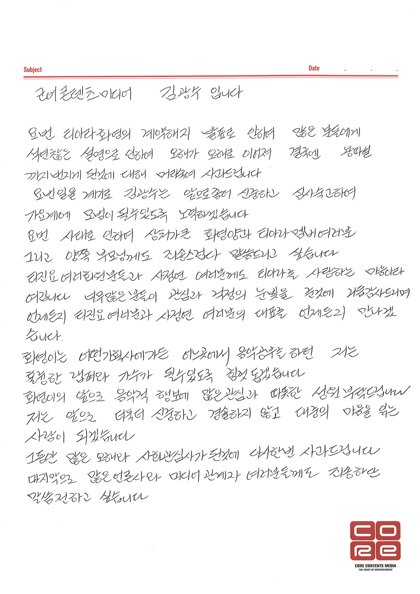 Subject
Date . . .
코어콘텐츠미디어 김광수 입니다
요번 티아라 화영의 계약해지 발표로 인하여 많은 분들에게
석연찮은 설명으로 인하여 오해가 오해로 이어져 결국엔 왕따설
까지 번지게 된것에 대해 머리숙여 사과드립니다
요번일을 계기로 김광수는 앞으로좀더 신중하고 심사숙고하여
가요계에 모범이 될수있도록 노력하겠습니다
요번 사태로 인하여 상처가큰 화영양과 티아라 멤버 여러분
그리고 양쪽 부모님께도 죄송스럽다 말씀드리고 싶습니다
티진요 여러회원분들과 사정연 여러분께도 티아라를 사랑하는 마음이라
여깁니다 더욱많은 분들이 관심과 걱정의 눈빛을 준것에 가슴깊이 감사드리며
언제든지 티진요 여러분과 사정연 여러분의 대표를 언제든지 만나겠
습니다.
화영이는 어떤기획사에가든 어느곳에서 음악공부를 하던 저는
훌륭한 랩퍼와 가수가 될수있도록 힘껏 돕겠습니다
화영이의 앞으로 음악적 행보에 많은관심과 따뜻한 성원 부탁드립니다
저는 앞으로 더욱더 신중하고 경솔하지 않고 대중의 마음을 읽는
사람이 되겠습니다
그동안 많은 오해와 사회관심사가 된것에 다시한번 사과드립니다
마지막으로 많은 언론사와 미디어 관계자 여러분들께도 죄송하단
말씀 전하고 싶습니다
CORE
CORE CONTENTS MEDIA